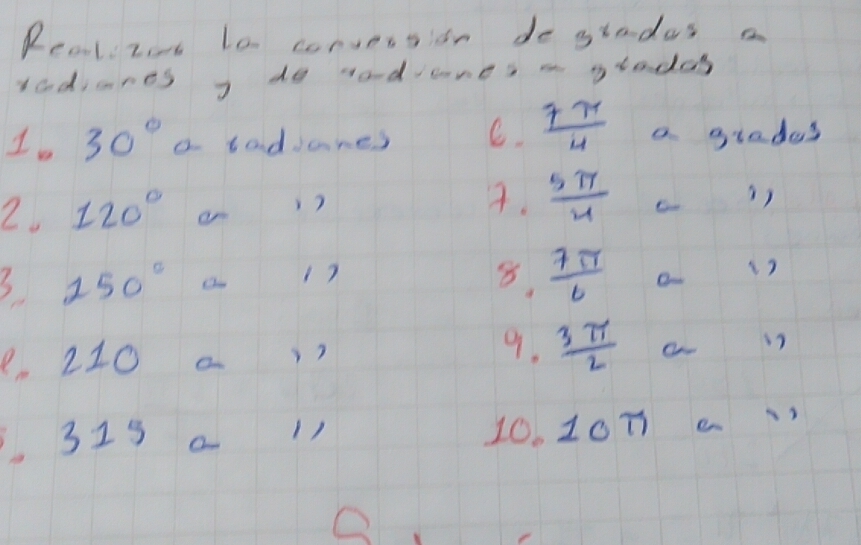 Realizar la conversión de grados a
radianes y de radianes a grados
1. 30° a radianes
2. 120° a ''
3. 150° a ''
210 a ''
315 a ''
6. 7π/4 a grados
7. 5π/4 a ''
8. 7π/6 a ''
9. 3π/2 a ''
10. 10π a ''